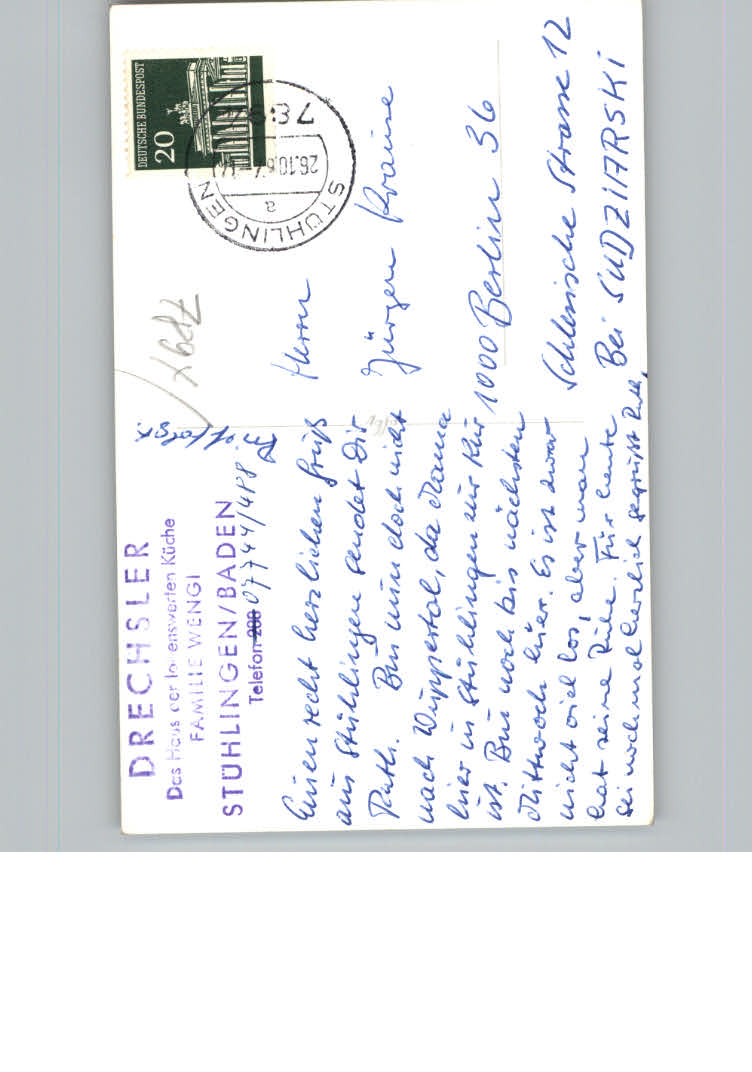 DRECHSLER
Das Haus der lobenswerten Küche
FAMILIE WENGI
STÜHLINGEN/BADEN
Telefon 208 07744/488
Einen recht herzlichen Gruß
aus Stühlingen sendet Dir
Ruth. Bin nun doch nicht
nach Wuppertal, da Mama
hier in Stühlingen zur Kur
ist. Bin noch bis nächsten
Mittwoch hier. Es ist zwar
nicht viel los, aber man
hat seine Ruhe. Für heute
sei nochmal herzlich gegrüßt Ruth.
DEUTSCHE BUNDESPOST
20
STÜHLINGEN
a
26.10.67
Herrn
Jürgen Krause
1000 Berlin 36
Schlesische Strasse 12
Bei SUDZIARSKI